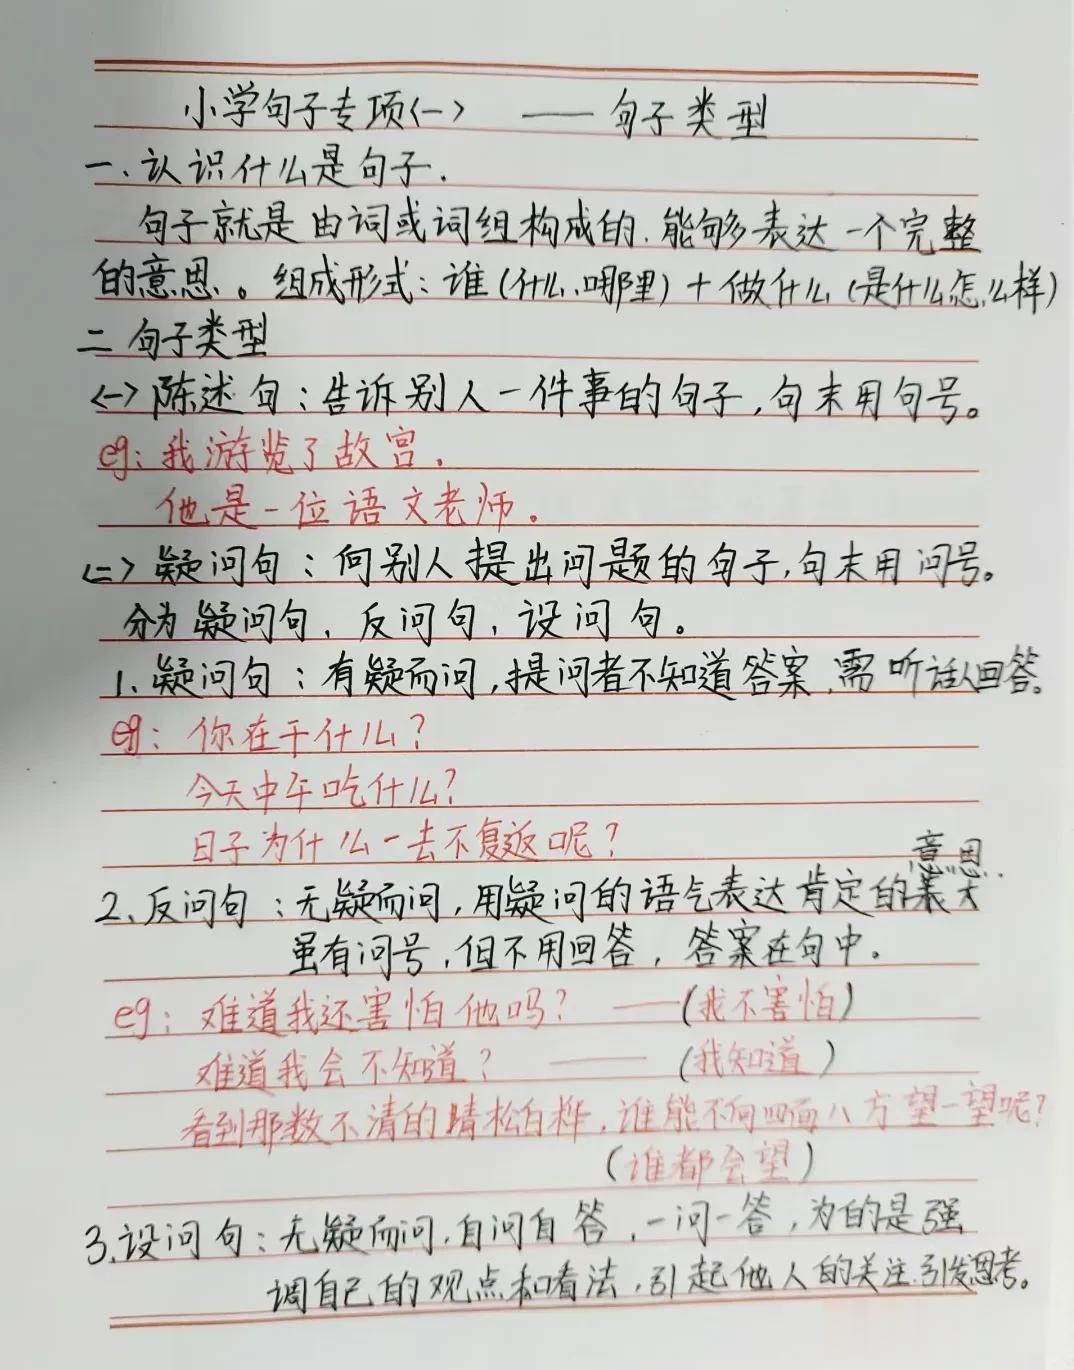 小学句子专项<一> —— 句子类型
一、认识什么是句子.
句子就是由词或词组构成的.能够表达一个完整
的意思。组成形式：谁(什么、哪里)+做什么(是什么怎么样)
二 句子类型
<一>陈述句：告诉别人一件事的句子,句末用句号。
eg：我游览了故宫.
他是一位语文老师.
<二>疑问句：向别人提出问题的句子,句末用问号。
分为疑问句、反问句、设问句。
1、疑问句：有疑而问,提问者不知道答案,需听话人回答。
eg：你在干什么？
今天中午吃什么？
日子为什么一去不复返呢？
意思..
2、反问句：无疑而问,用疑问的语气表达肯定的
虽有问号,但不用回答,答案在句中。
eg：难道我还害怕他吗？——(我不害怕)
难道我会不知道？——(我知道)
看到那数不清的青松白桦,谁能不向四面八方望一望呢？
(谁都会望)
3、设问句：无疑而问,自问自答,一问一答,为的是强
调自己的观点和看法,引起他人的关注.引发思考。